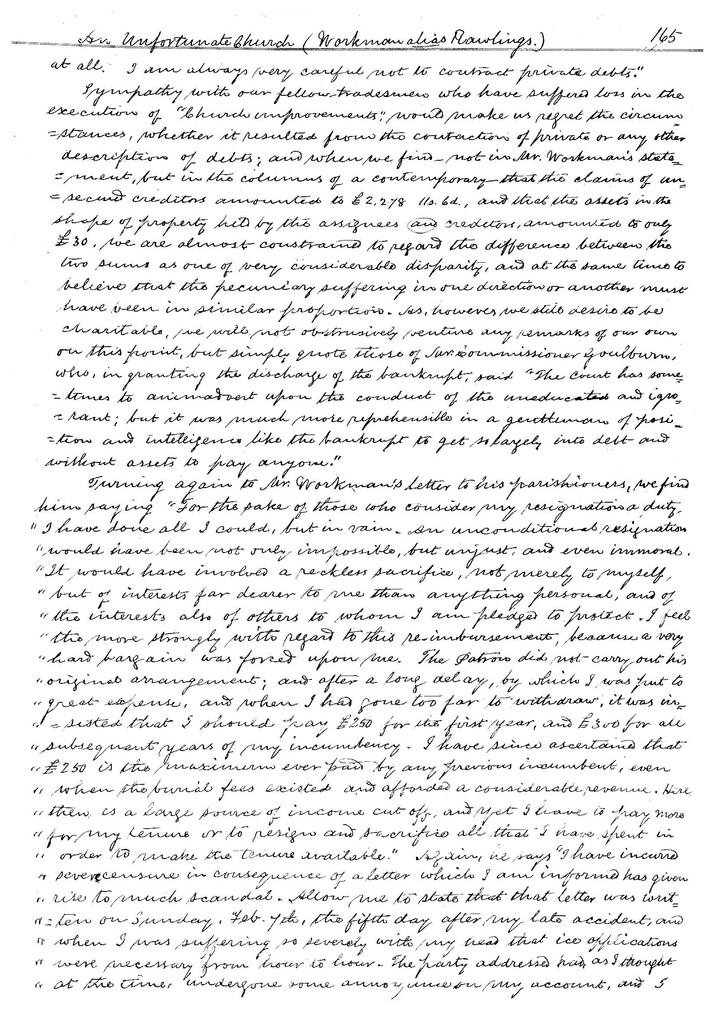 An Unfortunate Church (Workman alias Rawlings.) 165
at all. I am always very careful not to contract private debts."
Sympathy with our fellow-tradesmen who have suffered loss in the
execution of "Church improvements", would make us regret the circum
=stances, whether it resulted from the contraction of private or any other
description of debts; and when we find - not in Mr. Workman's state=
=ment, but in the columns of a contemporary - that the claims of un=
=secured creditors amounted to £2,278 11s. 6d., and that the assets in the
shape of property held by the assignees and creditors, amounted to only
£30, we are almost constrained to regard the difference between the
two sums as one of very considerable disparity, and at the same time to
believe that the pecuniary suffering in one direction or another must
have been in similar proportion. As, however, we still desire to be
charitable, we will not obstrusively venture any remarks of our own
on this point, but simply quote those of Mr. Commissioner Goulburn,
who, in granting the discharge of the bankrupt, said "The Court has some=
=times to animadvert upon the conduct of the uneducated and igno=
=rant; but it was much more reprehensible in a gentleman of posi=
=tion and intelligence like the bankrupt to get so largely into debt and
without assets to pay anyone."
Turning again to Mr. Workman's letter to his parishioners, we find
him saying "For the sake of those who consider my resignation a duty,
"I have done all I could, but in vain. An unconditional resignation
"would have been not only impossible, but unjust, and even immoral.
"It would have involved a reckless sacrifice, not merely to myself,
"but of interests far dearer to me than anything personal, and of
"the interests also of others to whom I am pledged to protect. I feel
"the more strongly with regard to this re-imbursement, because a very
"hard bargain was forced upon me. The Patron did not carry out his
"original arrangement; and after a long delay, by which I was put to
"great expense, and when I had gone too far to withdraw, it was in=
"=sisted that I should pay £250 for the first year, and £300 for all
"subsequent years of my incumbency. I have since ascertained that
"£250 is the maximum ever paid by any previous incumbent, even
"when the burial fees existed and afforded a considerable revenue. Here
"then is a large source of income cut off, and yet I have to pay more
"for my tenure or to resign and sacrifice all that I have spent in
"order to make the tenure available." Again, he says "I have incurred
"severe censure in consequence of a letter which I am informed has given
"rise to much scandal. Allow me to state that that letter was writ=
"=ten on Sunday, Feb. 7th, the fifth day after my late accident, and
"when I was suffering so severely with my head that ice applications
"were necessary from hour to hour. The party addressed had, as I thought
"at the time, undergone some annoyance on my account, and I